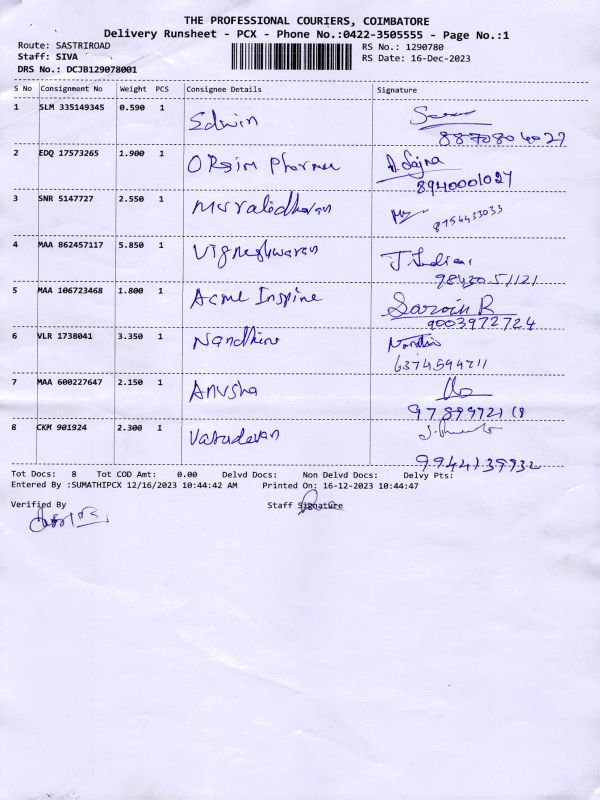 THE PROFESSIONAL COURIERS, COIMBATORE
Delivery Runsheet - PCX - Phone No.:0422-3505555 - Page No.:1
Route: SASTRIROAD RS No.: 1290780
Staff: SIVA RS Date: 16-Dec-2023
DRS No.: DCJB129078001
S No Consignment No Weight PCS Consignee Details Signature
1 SLM 335149345 0.590 1 Edwin
2 EDQ 17573265 1.900 1 A. Sajna
8940001027
3 SNR 5147727 2.550 1 Muralidharan 8754433033
4 MAA 862457117 5.850 1 Vigneshwaran
9843051121
5 MAA 106723468 1.800 1 Acme Inspine
9003972724
6 VLR 1738041 3.350 1 Nandhini
7 MAA 600227647 2.150 1 Anusha
8 CKM 901924 2.300 1 Vasudevan
9944139932
Tot Docs: 8 Tot COD Amt: 0.00 Delvd Docs: Non Delvd Docs: Delvy Pts:
Entered By :SUMATHIPCX 12/16/2023 10:44:42 AM Printed On: 16-12-2023 10:44:47
Verified By Staff Signature